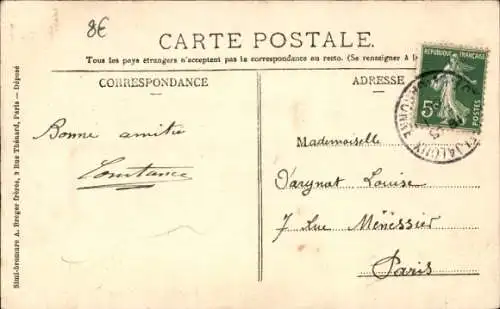 8€
CARTE POSTALE.
Tous les pays étrangers n'acceptent pas la correspondance au recto. (Se renseigner à la
CORRESPONDANCE
ADRESSE
RÉPUBLIQUE FRANÇAISE
5c
POSTES
Bonne amitié
Constance
Mademoiselle
Vargnat Louise
7 Rue Ménessier
Paris
Simili-bromure A. Breger frères, 9 Rue Thénard, Paris — Déposé